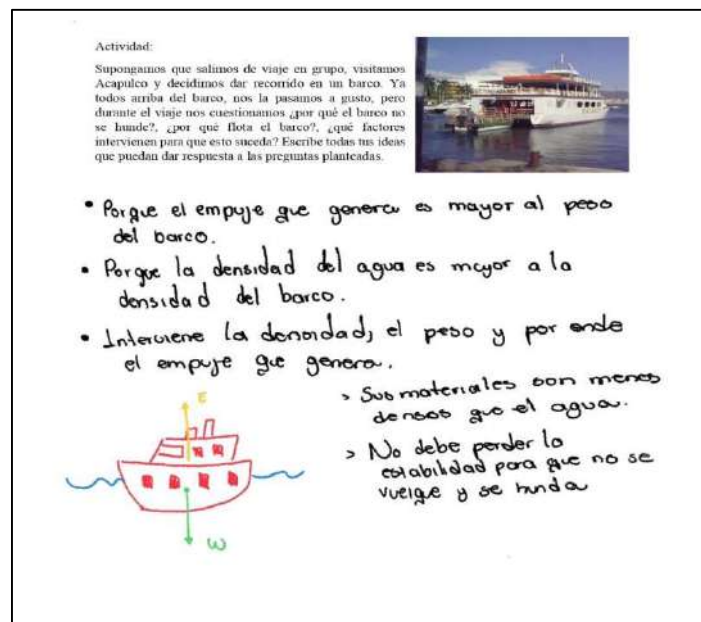 Actividad:
Supongamos que salimos de viaje en grupo, visitamos
Acapulco y decidimos dar recorrido en un barco. Ya
todos arriba del barco, nos la pasamos a gusto, pero
durante el viaje nos cuestionamos ¿por qué el barco no
se hunde?, ¿por qué flota el barco?, ¿qué factores
intervienen para que esto suceda? Escribe todas tus ideas
que puedan dar respuesta a las preguntas planteadas.
• Porque el empuje que genera es mayor al peso
del barco.
• Porque la densidad del agua es mayor a la
densidad del barco.
• Interviene la densidad, el peso y por ende
el empuje que genera.
> Sus materiales son menos
densos que el agua.
> No debe perder la
estabilidad para que no se
vuelque y se hunda
E
W